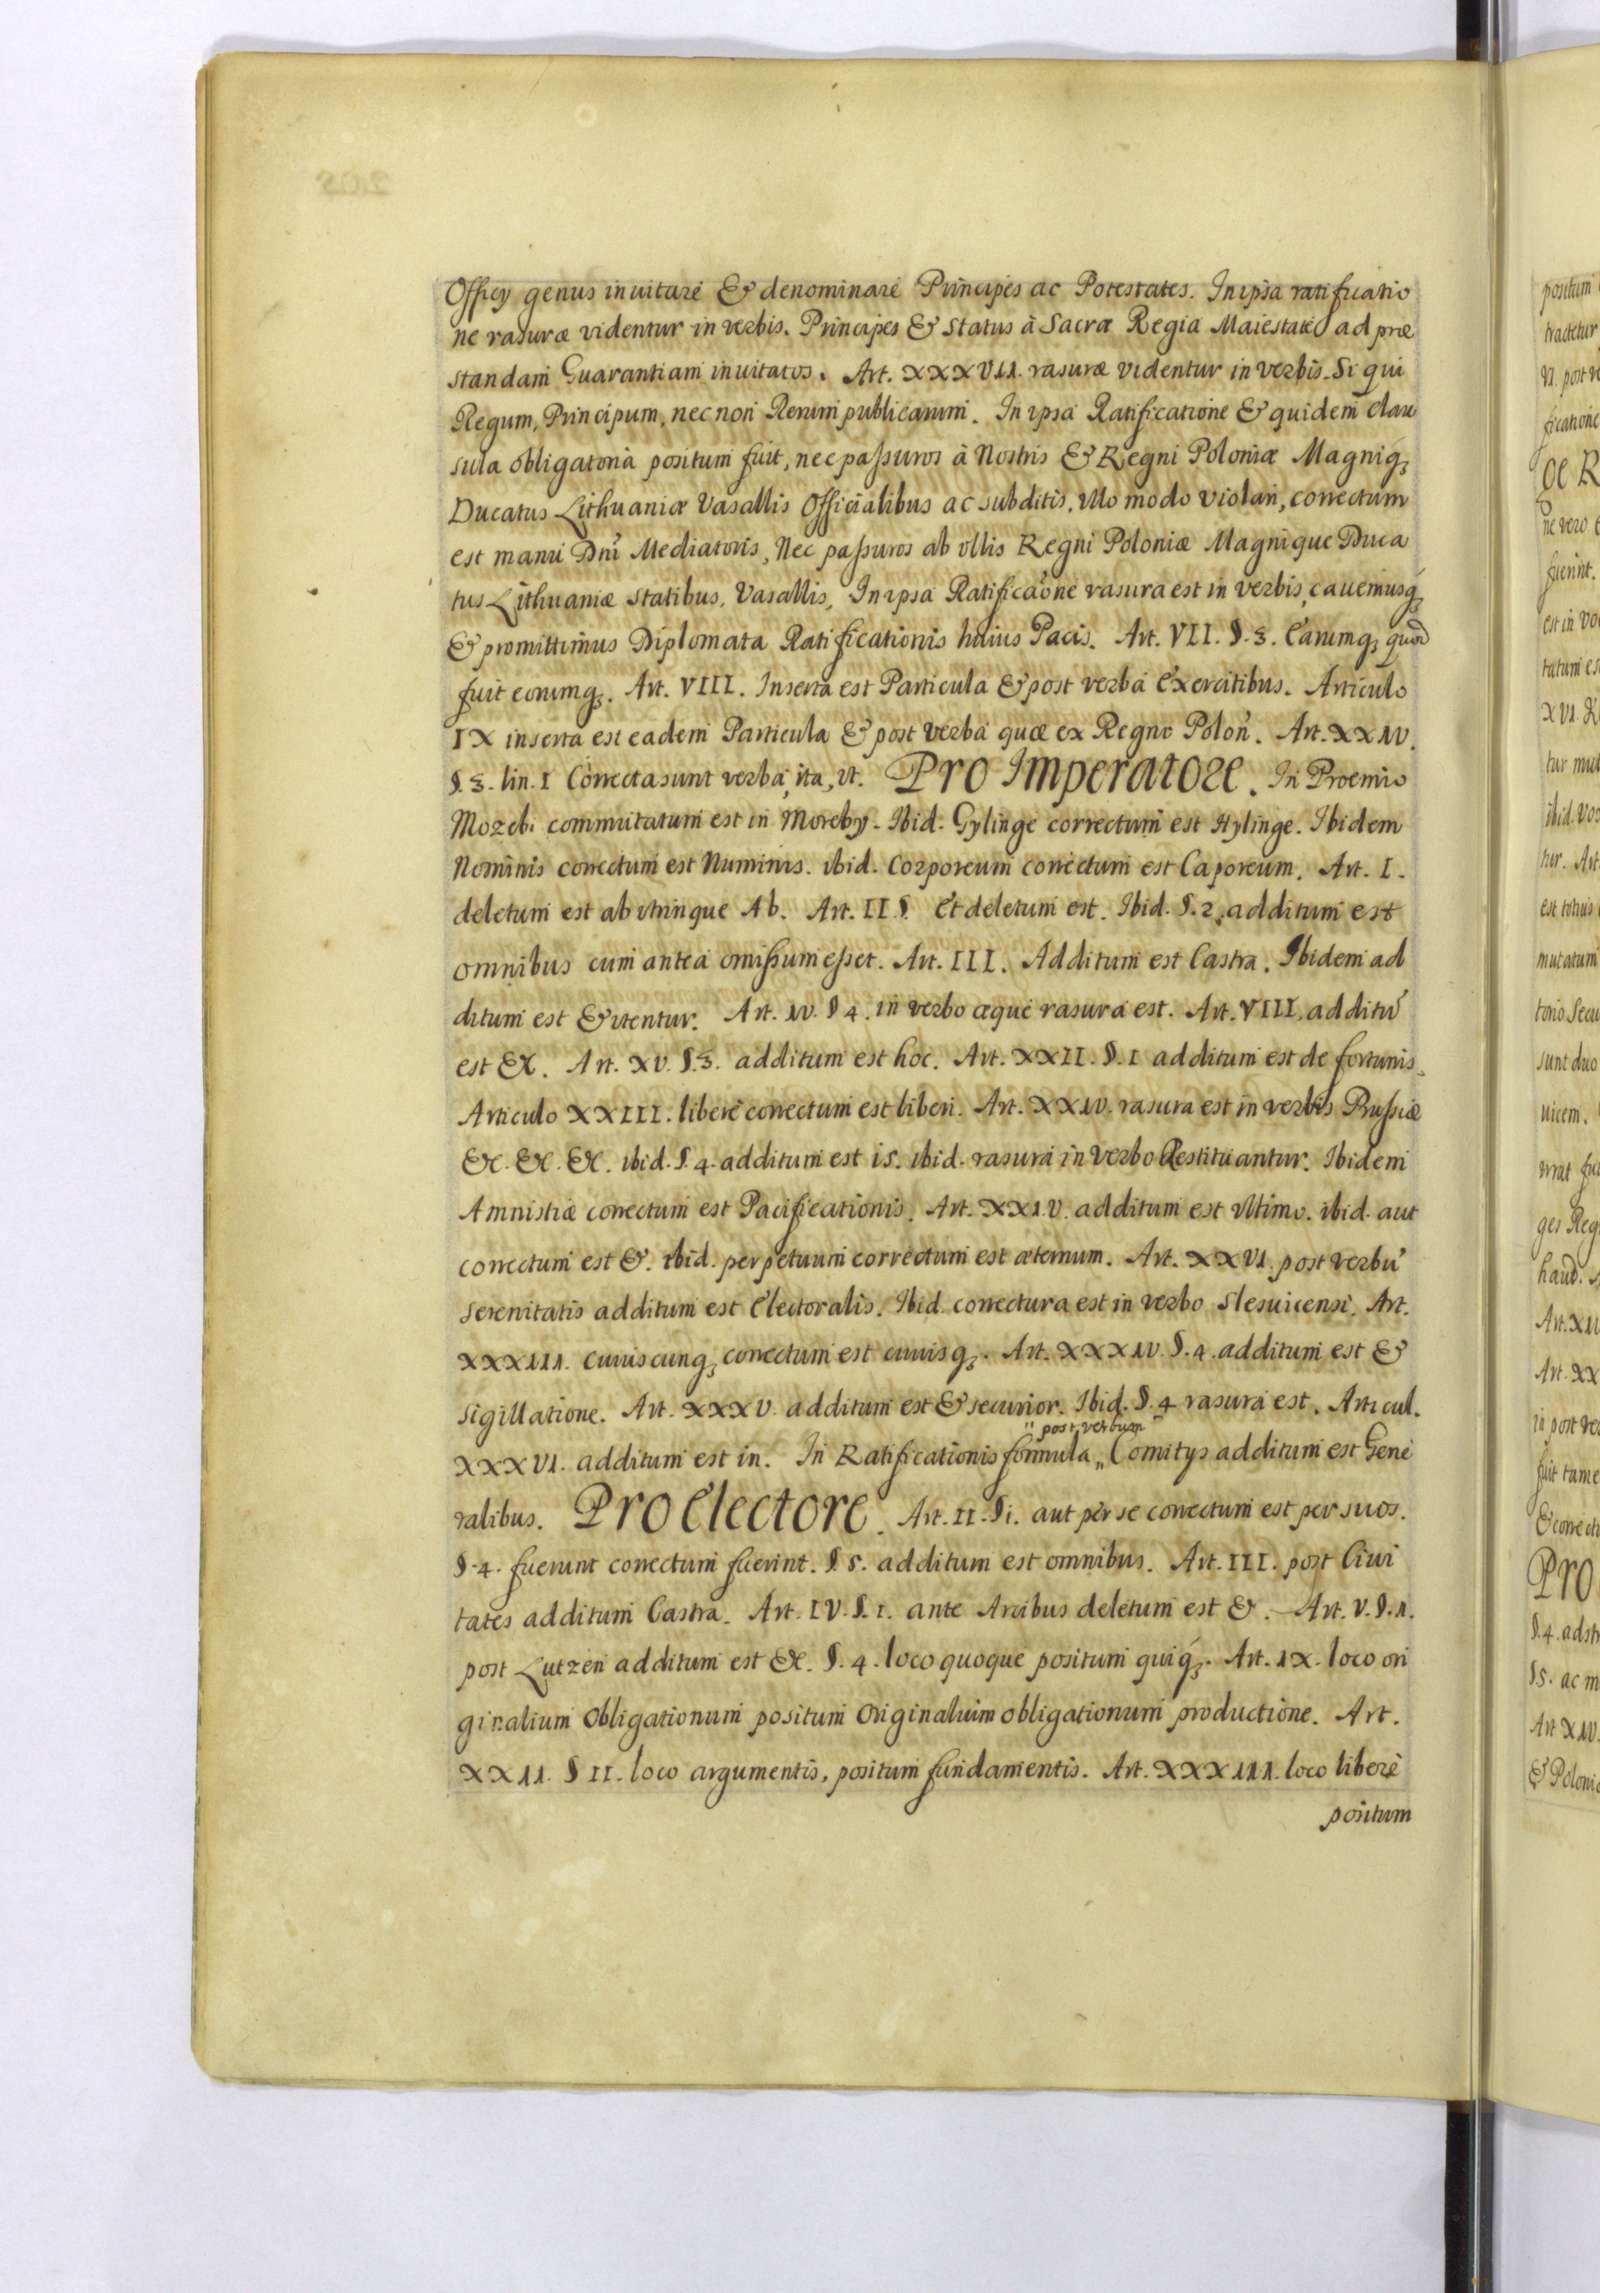 Officij genus inuitare & denominare Principes ac Potestates. In ipsa ratificatio
ne rasuræ videntur in verbis. Principes & Status à Sacra Regia Maiestate ad præ
standam Guarantiam inuitatos. Art. XXXVII. rasuræ videntur in verbis. Si qui
Regum, Principum, nec non Rerum publicarum. In ipsa Ratificatione & quidem Clau
sula obligatoria positum fuit, nec passuros à Nostris & Regni Poloniæ Magniq;
Ducatus Lithuaniæ Vasallis Officialibus ac subditis, vllo modo violari, correctum
est manu Dni Mediatoris, Nec passuros ab vllis Regni Poloniæ Magnique Duca
tus Lithuaniæ statibus, Vasallis, In ipsa Ratificaone rasura est in verbis, cauemusq;
& promittimus Diplomata Ratificationis huius Pacis. Art. VII. §. 3. Earumq; quod
fuit eorumq;. Art. VIII. Inserta est Particula & post verba Exercitibus. Articulo
IX inserta est eadem Particula & post verba quæ ex Regno Polon. Art. XXIV.
§. 3. lin. I Correcta sunt verba, ita, vt. Pro Imperatore. In Proemio
Mozebi commutatum est in Moreby. Ibid. Gylinge correctum est Hylinge. Ibidem
Nominis correctum est Numinis. ibid. Corporeum correctum est Caporeum. Art. I.
deletum est ab vtrinque Ab. Art. II §. Et deletum est. Ibid. §. 2. additum est
omnibus cum antea omissum esset. Art. III. Additum est Castra. Ibidem ad
ditum est & vtentur. Art. IV. § 4. in verbo æque rasura est. Art. VIII. additu
est &. Art. XV. §. 3. additum est hoc. Art. XXII. §. I additum est de fortunis.
Articulo XXIII. libere correctum est liberi. Art. XXIV. rasura est in verbis Prussiæ
&c. &c. &c. ibid. §. 4. additum est is. ibid. rasura in verbo Restituantur. Ibidem
Amnistiæ correctum est Pacificationis. Art. XXIV. additum est vltimo. ibid. aut
correctum est &. ibid. perpetuum correctum est æternum. Art. XXVI. post verbu
Serenitatis additum est Electoralis. Ibid. correctura est in verbo Slesuicensi. Art.
XXXIII. Cuiuscunq; correctum est cuiusq;. Art. XXXIV. §. 4. additum est &
sigillatione. Art. XXXV. additum est & securior. Ibid. §. 4 rasura est. Articul.
XXXVI. additum est in. In Ratificationis formula " post verbum " Comitijs additum est Gene
ralibus. Pro Electore. Art. II. § i. aut per se correctum est per suos.
§. 4. fuerunt correctum fuerint. §. 5. additum est omnibus. Art. III. post Ciui
tates additum Castra. Art. IV. §. I. ante Arcibus deletum est &. Art. V. §. 1.
post Lutzen additum est &. §. 4. loco quoque positum quiq;. Art. IX. loco ori
ginalium obligationum positum Originalium obligationum productione. Art.
XXII. § II. loco argumentis, positum fundamentis. Art. XXXIII. loco libere
positum